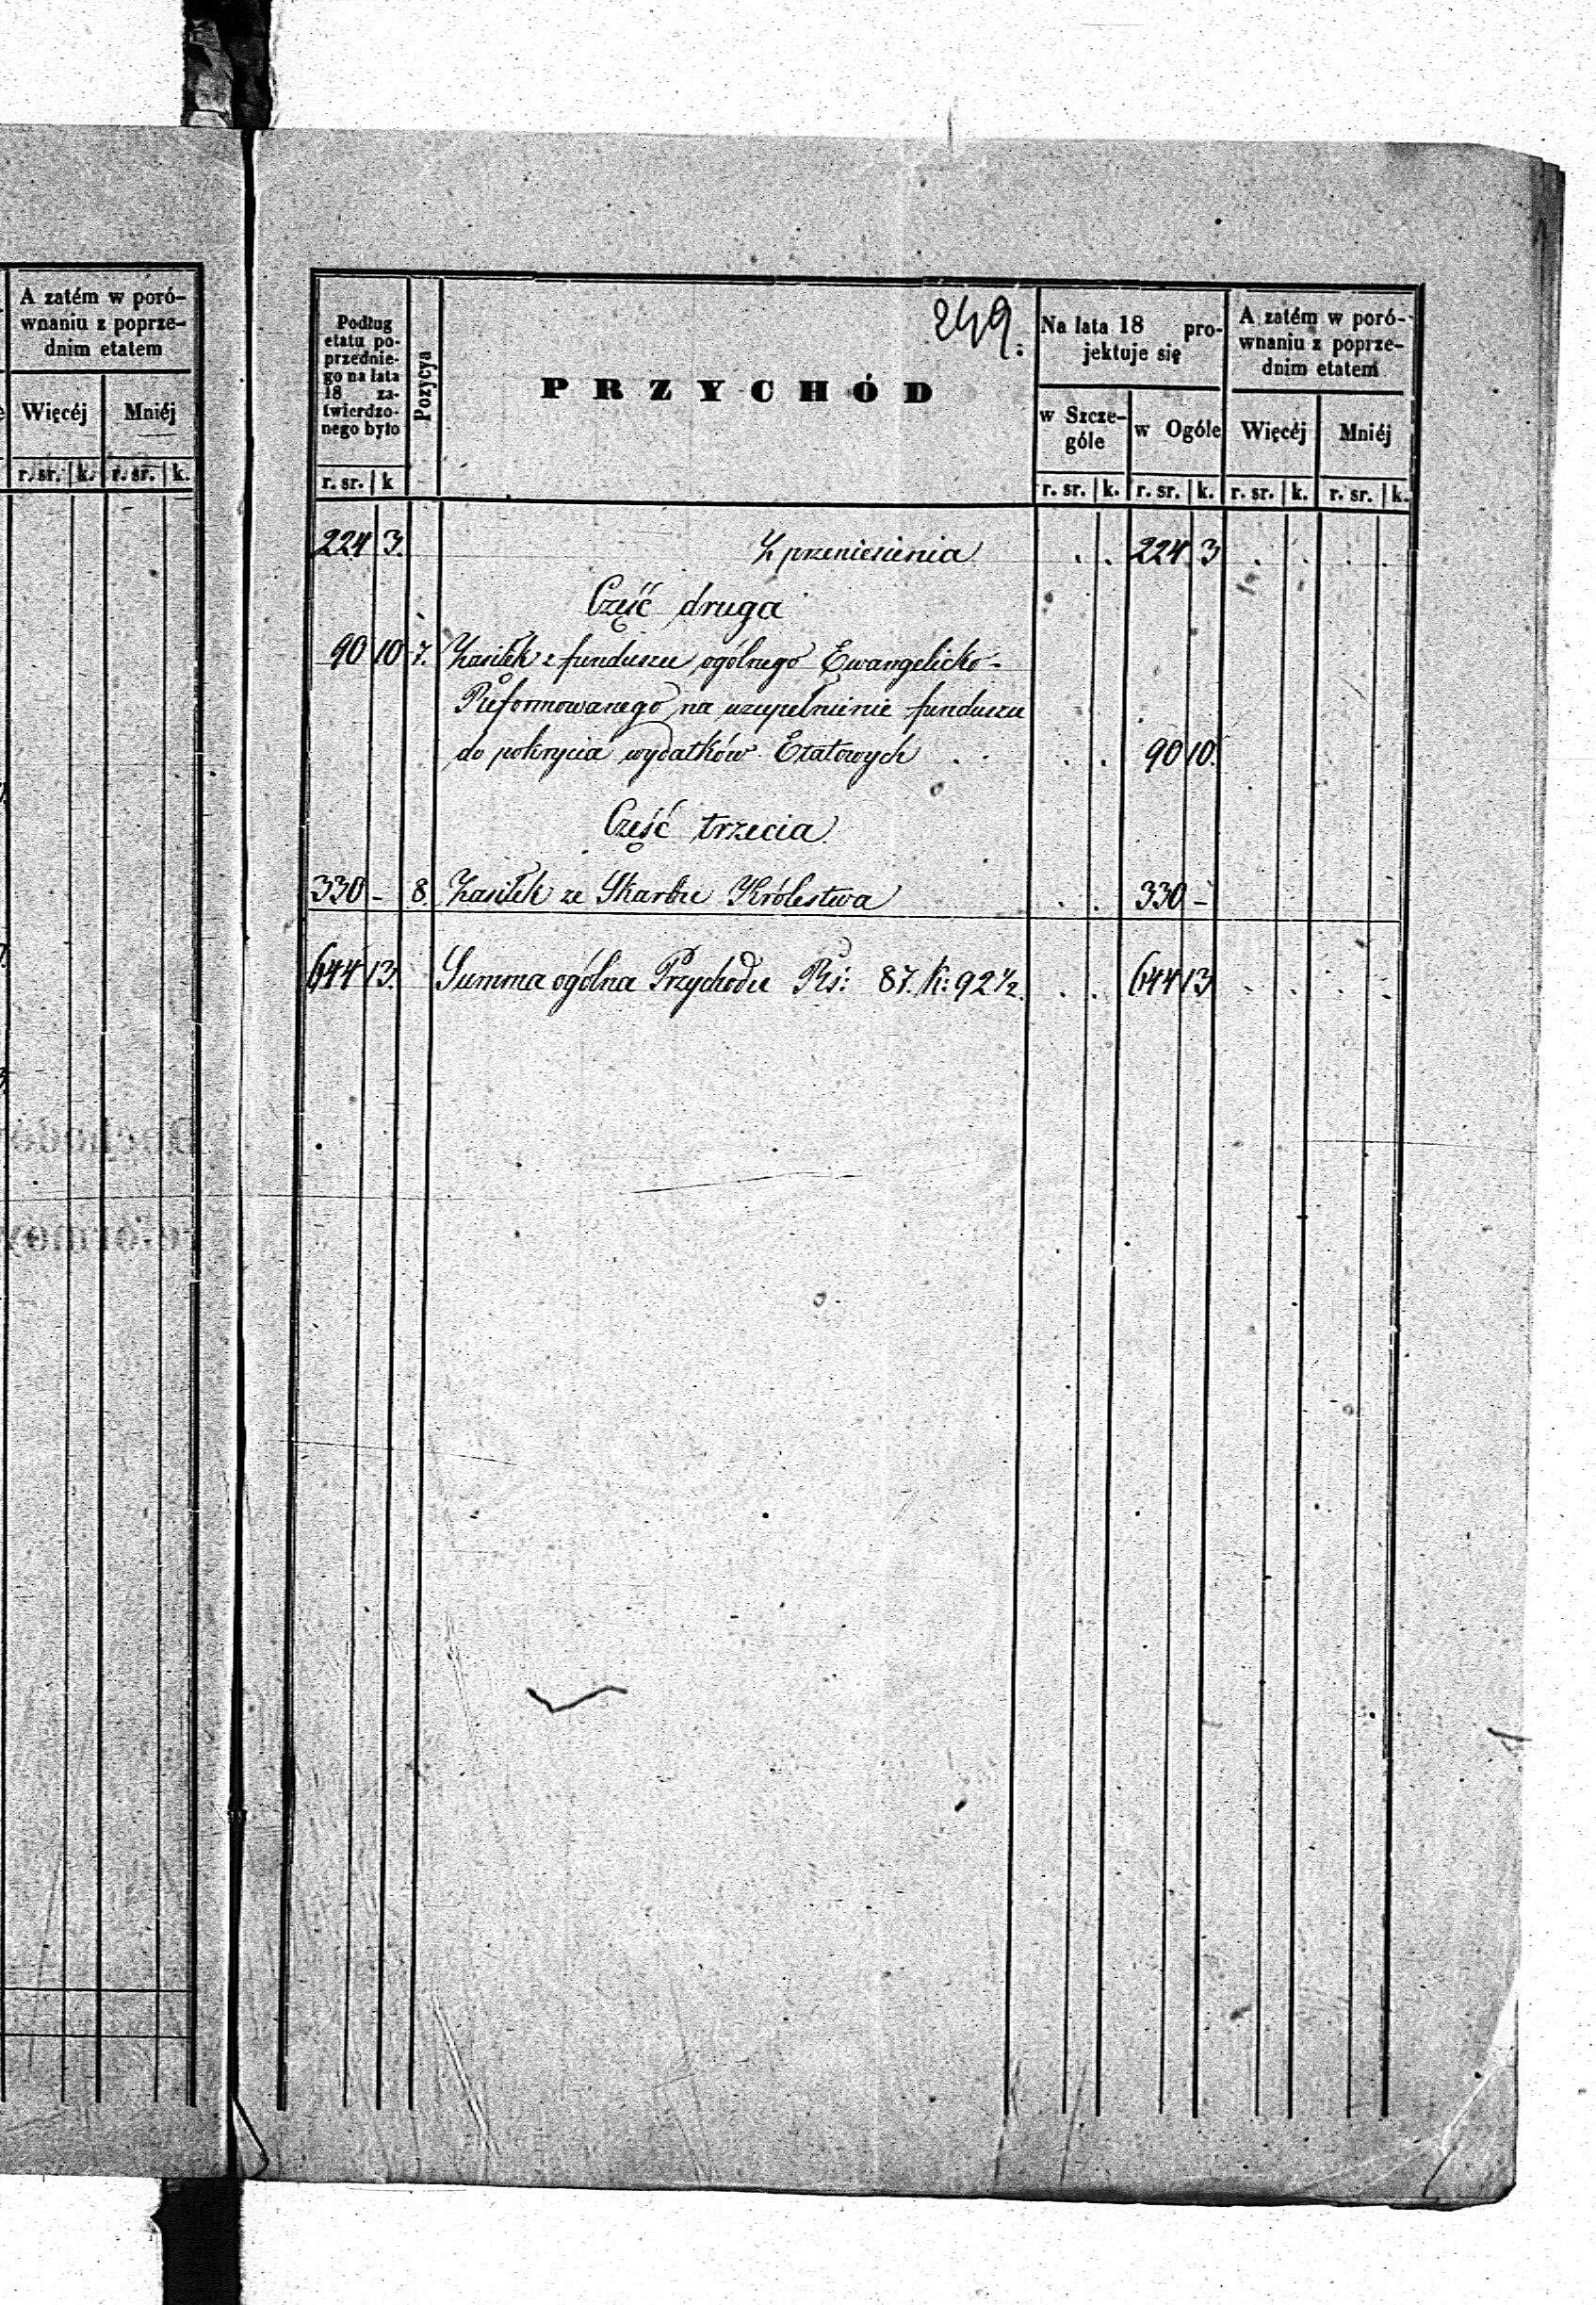 A zatém w poró-
wnaniu z poprze-
dnim etatem
Więcéj Mniéj
r. sr. k. r. sr. k.
249.
Podług
etatu po-
przednie-
go na lata
18 za-
twierdzo-
nego było
r. sr. k
Pozycya
PRZYCHÓD
Na lata 18 pro-
jektuje się
w Szcze-
góle
w Ogóle
r. sr. k. r. sr. k.
A zatém w poró-
wnaniu z poprze-
dnim etatem
Więcéj Mniéj
r. sr. k. r. sr. k.
224 3. Z przeniesienia . . 224 3 . . . .
Część druga
90 10 7. Zasiłek z funduszu ogólnego Ewangelicko-
Reformowanego na uzupełnienie funduszu
do pokrycia wydatków Etatowych . . . . 90 10.
Część trzecia
330 - 8. Zasiłek ze Skarbu Królestwa . . 330 -
644 13. Summa ogólna Przychodu Rs: 87. K: 92½. . . 644 13 . . . .